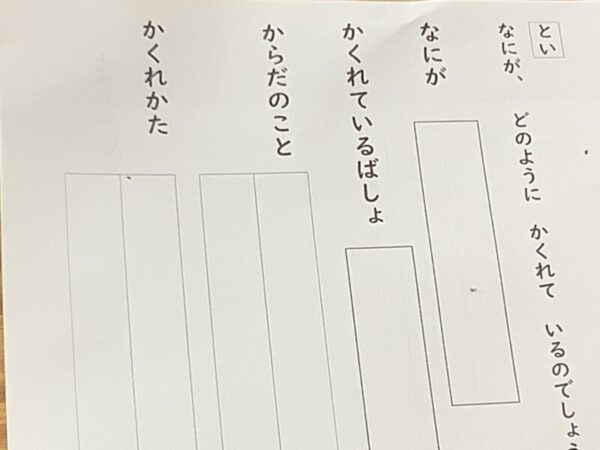 とい
なにが、 どのように かくれて いるのでしょう
なにが
かくれているばしょ
からだのこと
かくれかた